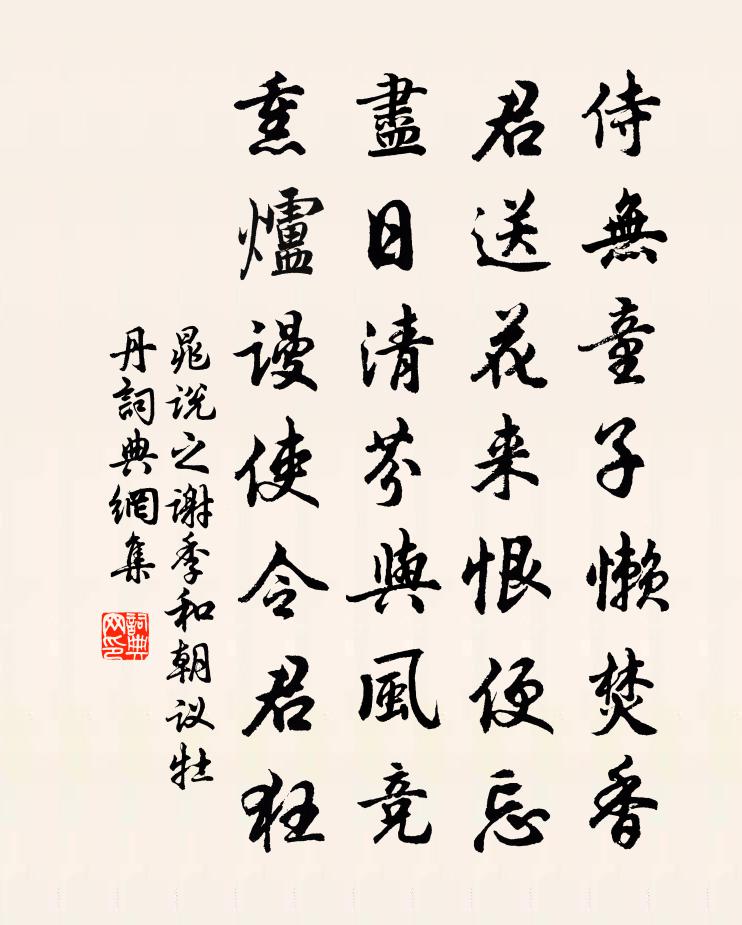 侍無童子懶焚香
君送花来恨便忘
盡日清芬與風競
熏爐謾使令君狂
晁说之谢季和朝议牡
丹詞典網集
詞典
网印